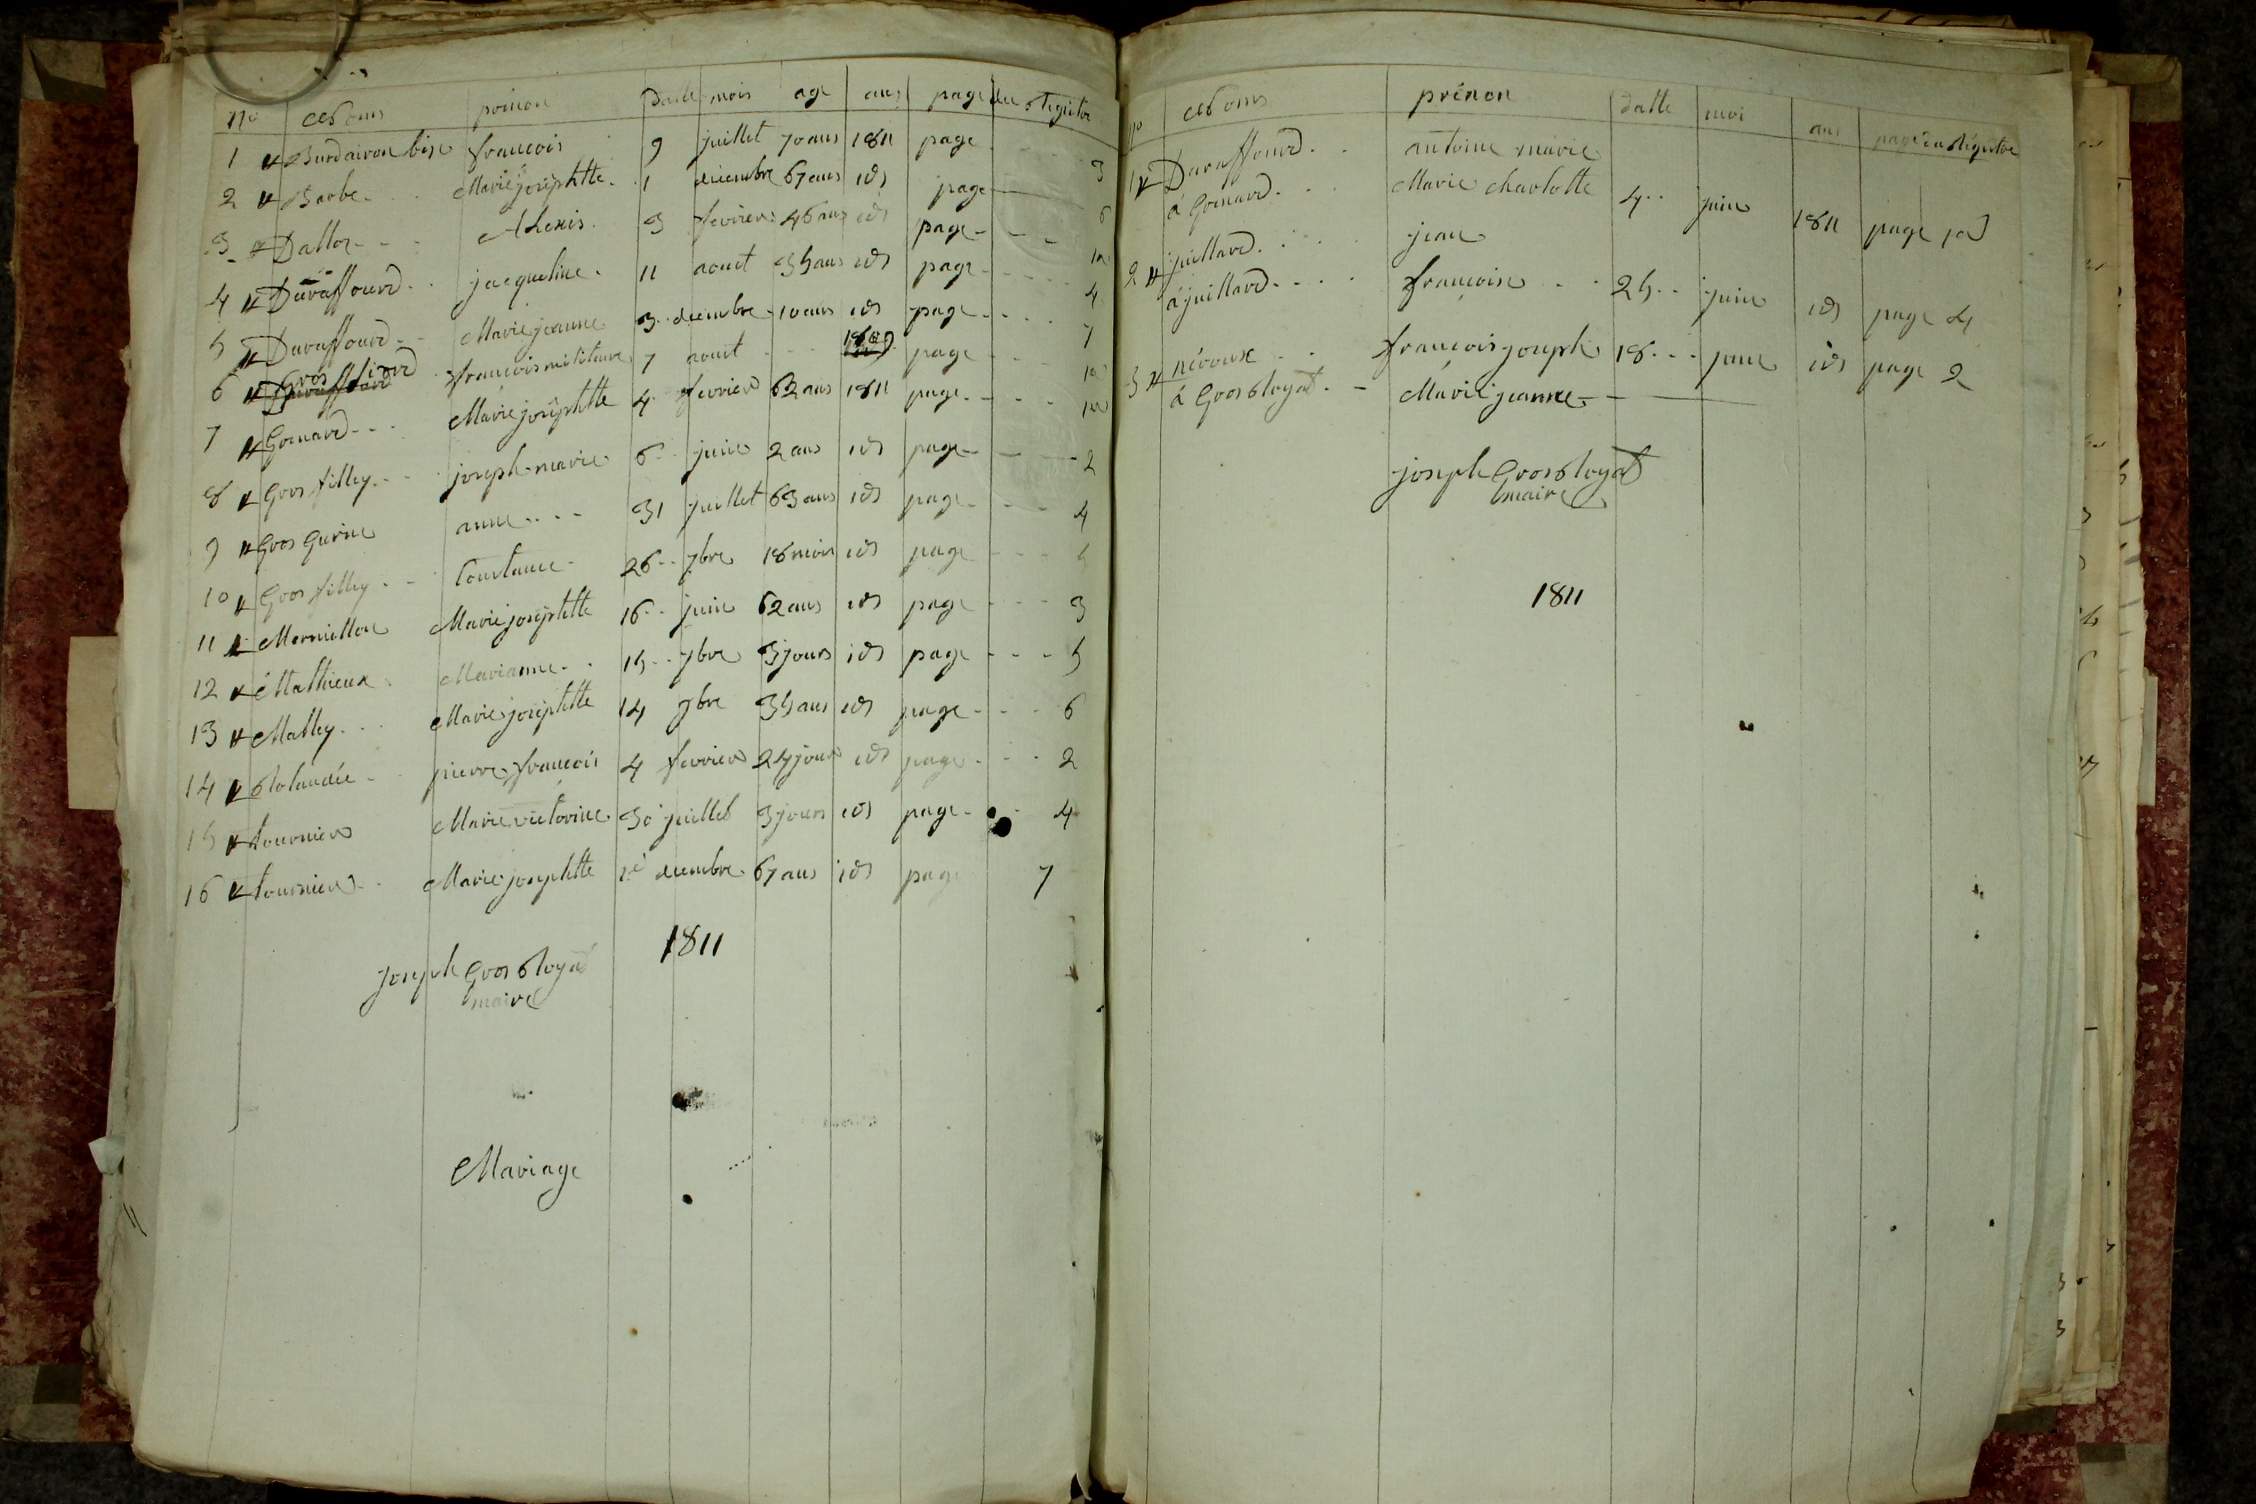 No Noms prénon Datte mois age ans page du Registre
1 Burdairon bise francois 9 juillet 70 ans 1811 page 3
2 Barbe Marie joséphtte 1 decembre 67 ans id page 6
3 Dalloz Alexis 3 fevrier 46 ans id page 1er
4 Duraffourd jacqueline 11 aout 35 ans id page 4
5 Duraffourd Marie jeanne 3 decembre 10 ans id page 7
6 francois militaire 7 aout 1809 page 1er
7 Gonard Marie joséphtte 4 fevrier 62 ans 1811 page 1er
8 Gros filley joseph marie 6 juin 2 ans id page 2
9 Gros Gurin anne 31 juillet 63 ans id page 4
10 Gros filley Constance 26 7bre 18 mois id page 5
11 Mermillon Marie joséphtte 16 juin 62 ans id page 3
12 Mathieux Marianne 15 7bre 3 jours id page 5
13 Malley Marie joséphtte 14 9bre 35 ans id page 6
14 Rolandée pierre francois 4 fevrier 24 jours id page 2
15 tournier Marie victorine 30 juillet 3 jours id page 4
16 tournier Marie josephtte decembre 67 ans id page 7
1811
joseph Gros Royat
maire
Mariage
No Noms prénon datte moi ans page du Régistre
1 Duraffourd antoine marie
á Gonard Marie charlotte 4 juin 1811 page 1er
2 juillard jean
á juillard francoise 25 juin id page 4
3 néroux francois joseph 18 juin id page 2
á Gros Royat Marie jeanne
joseph Gros Royat
maire
1811